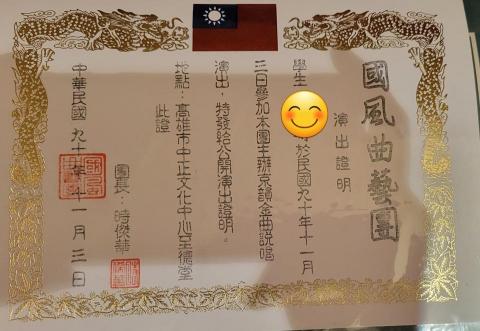 國風曲藝團
演出證明
學生
於民國九十年十一月
三日參加本團主辦京韻金曲說唱
演出，特發給公開演出證明。
地點：高雄市中正文化中心至德堂
此證
團長：時傑華
中華民國 九十年十一月三日